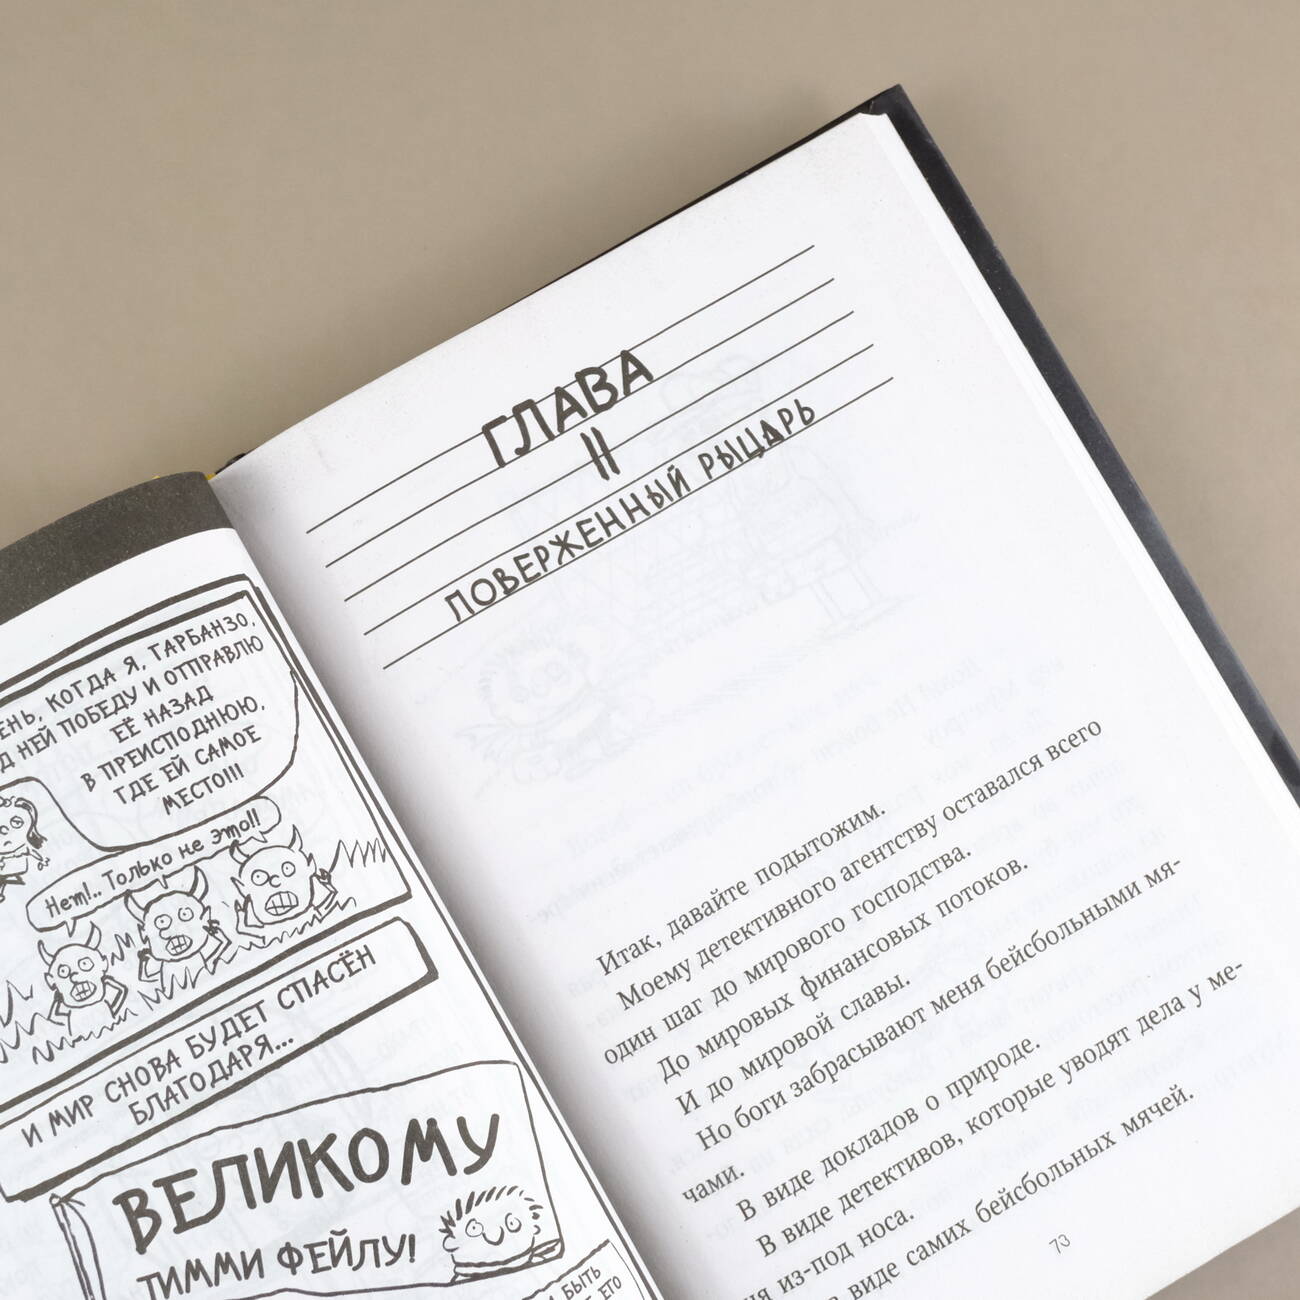 КОГДА Я, ГАРБАНЗО,
НЕЙ ПОБЕДУ И ОТПРАВЛЮ
ЕЁ НАЗАД
В ПРЕИСПОДНЮЮ,
ГДЕ ЕЙ САМОЕ
МЕСТО!!!
Нет!.. Только не это!!
И МИР СНОВА БУДЕТ СПАСЁН
БЛАГОДАРЯ...
ВЕЛИКОМУ
ТИММИ ФЕЙЛУ!
БЫТЬ
ЕГО
ГЛАВА
11
ПОВЕРЖЕННЫЙ РЫЦАРЬ
Итак, давайте подытожим.
Моему детективному агентству оставался всего
один шаг до мирового господства.
До мировых финансовых потоков.
И до мировой славы.
Но боги забрасывают меня бейсбольными мя-
чами.
В виде докладов о природе.
В виде детективов, которые уводят дела у ме-
ня из-под носа.
в виде самих бейсбольных мячей.
73